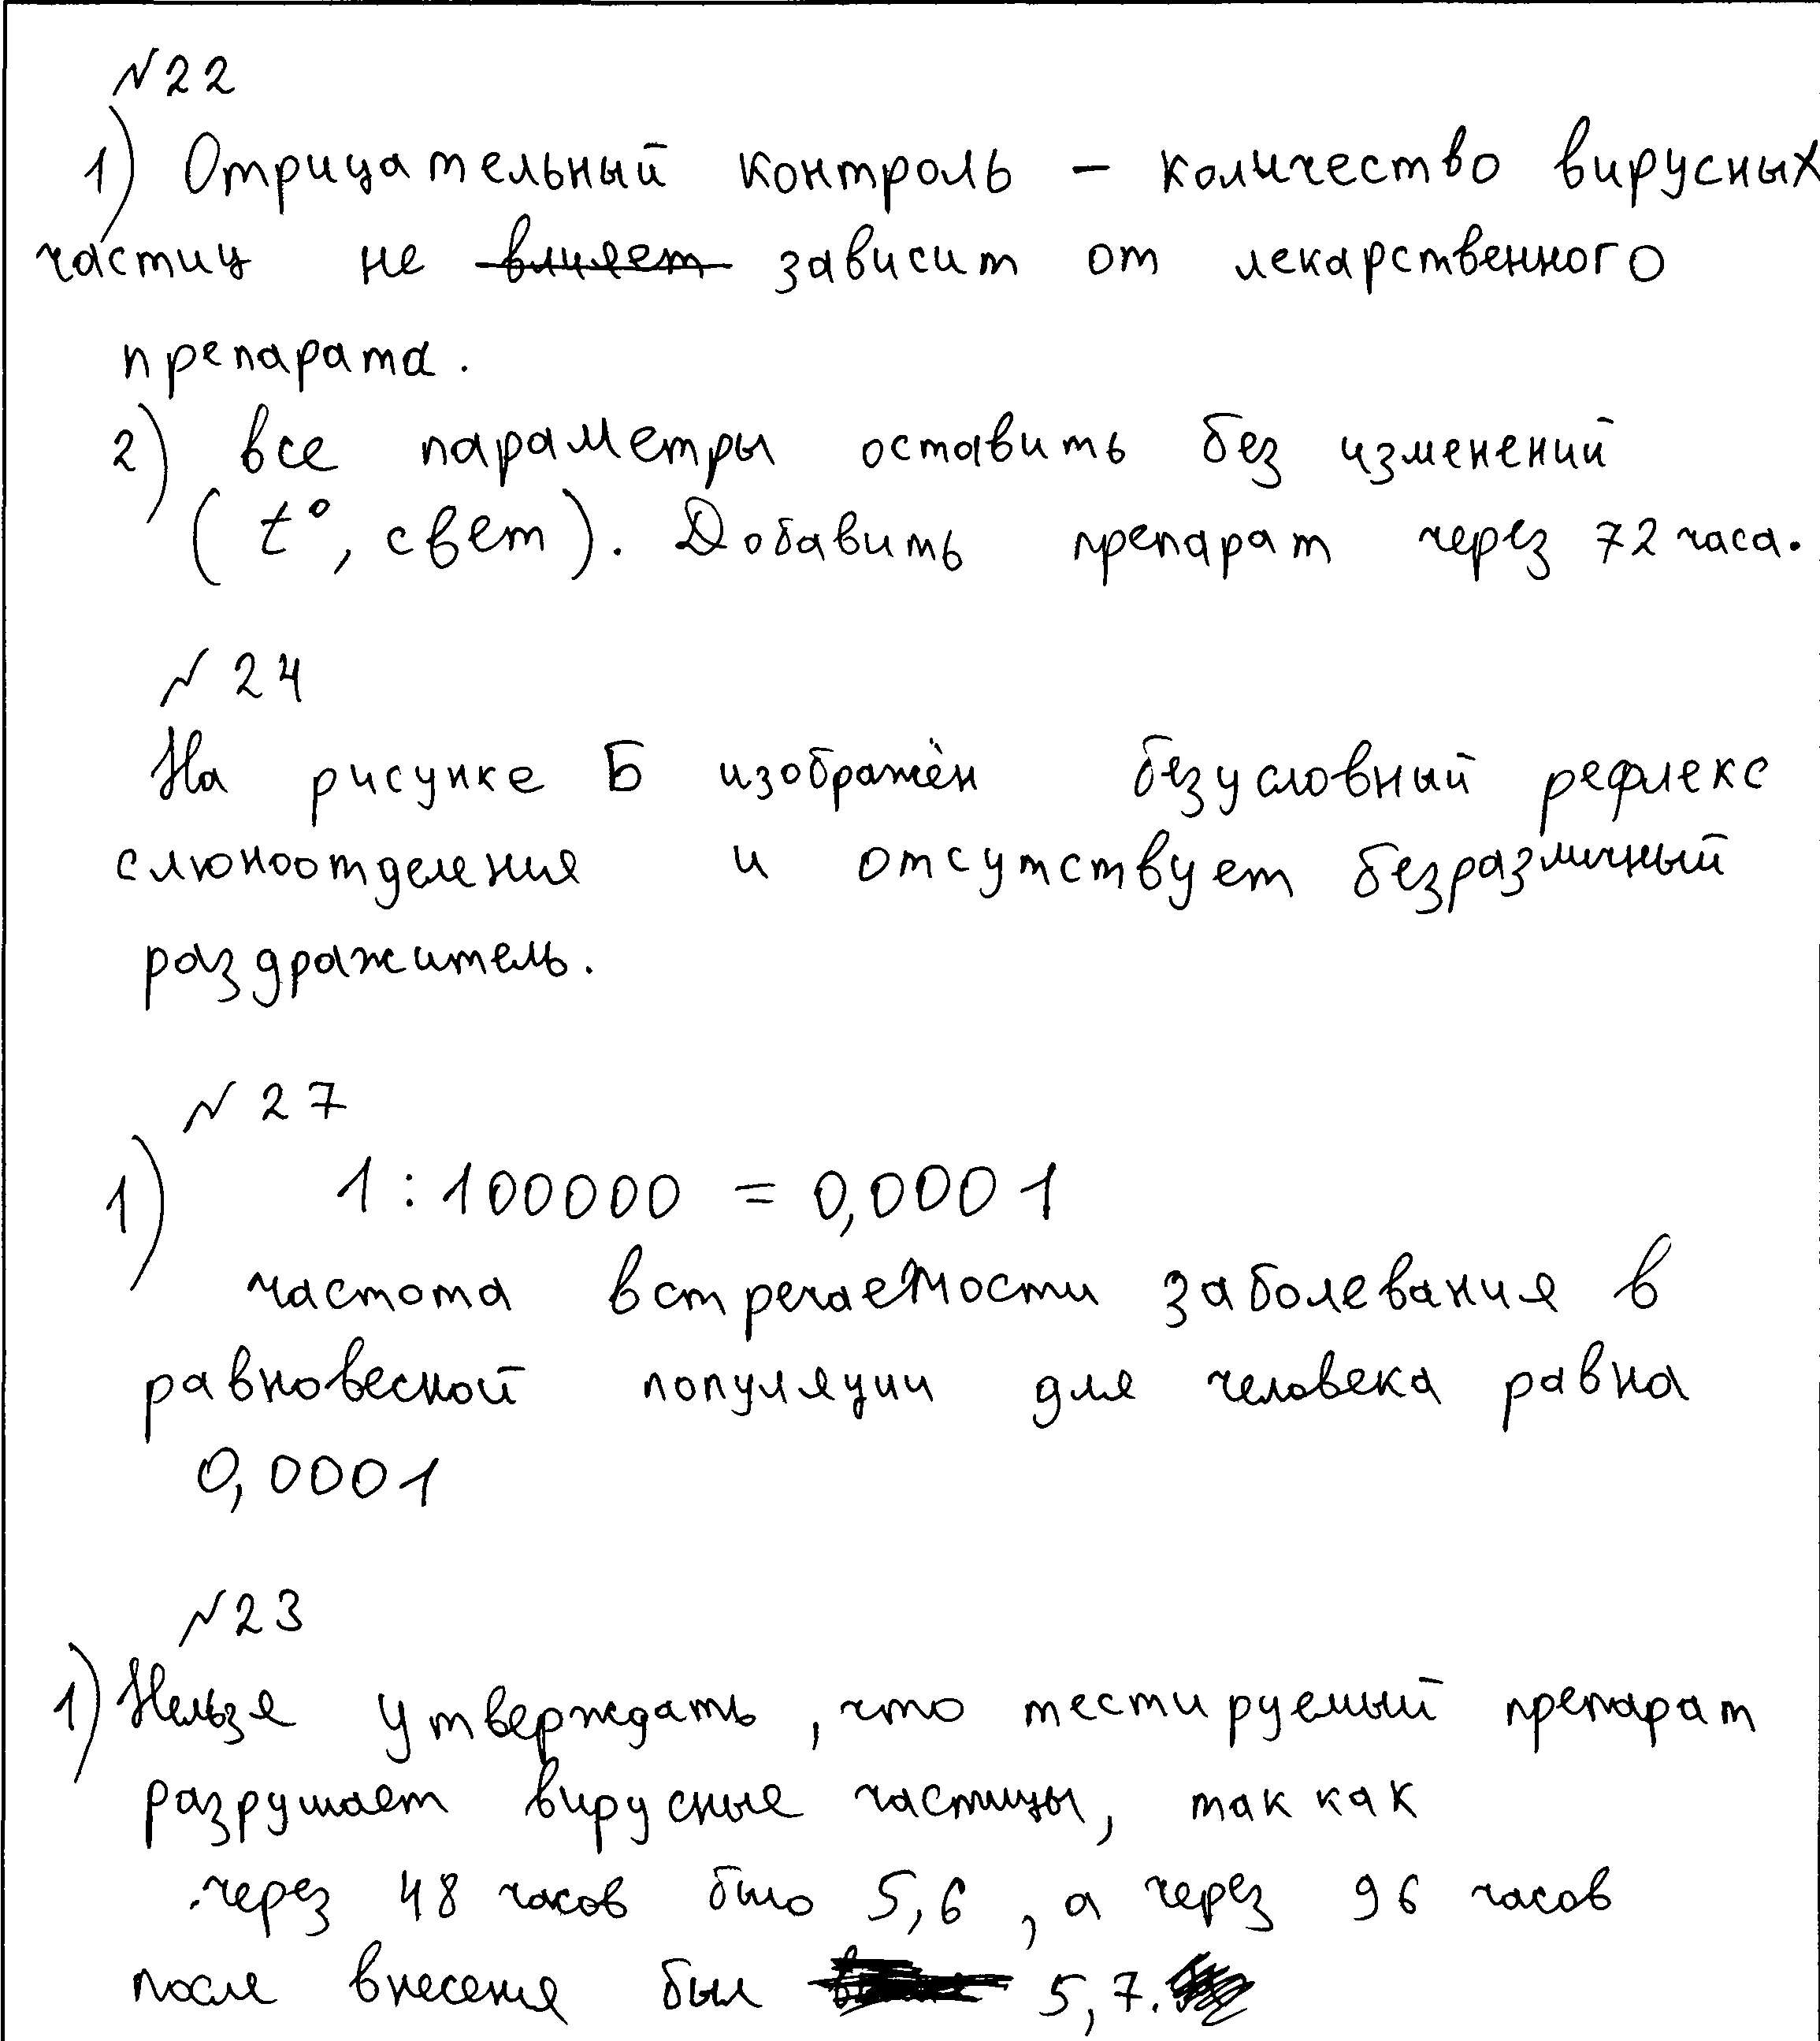 №22
1) Отрицательный контроль – количество вирусных
частиц не влияет зависит от лекарственного
препарата.
2) все параметры оставить без изменений
(t°, свет). Добавить препарат через 72 часа.
№ 24
На рисунке Б изображён безусловный рефлекс
слюноотделения и отсутствует безразличный
раздражитель.
№ 27
1) 1 : 100000 = 0,0001
частота встречаемости заболевания в
равновесной популяции для человека равна
0,0001
№23
1) Нельзя утверждать, что тестируемый препарат
разрушает вирусные частицы, так как
через 48 часов было 5,6, а через 96 часов
после внесеня был 5,7.